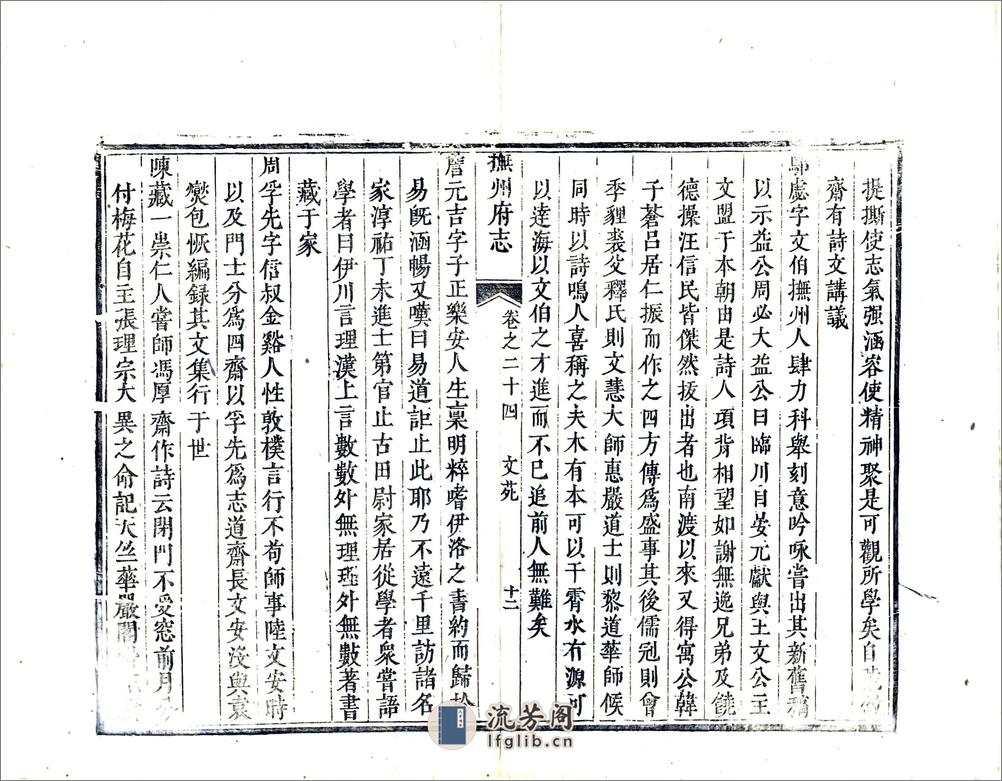 提撕使志氣强涵容使精神聚是可觀所學矣自
齋有詩文講議
鄔虙字文伯撫州人肆力科舉刻意吟咏嘗出其新舊稿
以示益公周必大益公曰臨川自晏元獻與王文公主
文盟于本朝由是詩人項背相望如謝無逸兄弟及饒
德操汪信民皆傑然拔出者也南渡以來又得寓公韓
子蒼呂居仁振而作之四方傳爲盛事其後儒冠則曾
季貍裘父釋氏則文慧大師惠嚴道士則黎道華師侯
同時以詩鳴人喜稱之夫木有本可以干霄水有源可
以達海以文伯之才進而不已追前人無難矣
撫州府志
卷之二十四 文苑 十二
詹元吉字子正樂安人生稟明粹嗜伊洛之書約而歸於
易既涵暢又嘆曰易道詎止此耶乃不遠千里訪諸名
家淳祐丁未進士第官止古田尉家居從學者衆嘗語
學者曰伊川言理漢上言數數外無理理外無數著書
藏于家
周孚先字信叔金谿人性敦樸言行不苟師事陸文安時
以及門士分爲四齋以孚先爲志道齋長文安沒與袁
爕包恢編録其文集行于世
陳藏一崇仁人嘗師馮厚齋作詩云閉門不受窓前月分
付梅花自主張理宗大異之命記天竺華嚴閣
流芳阁
lfglib.cn